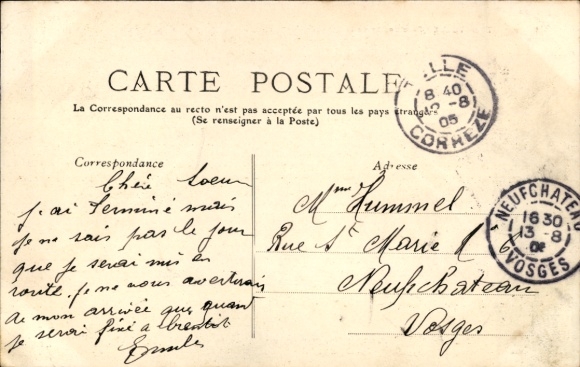 CARTE POSTALE
La Correspondance au recto n'est pas acceptée par tous les pays étrangers
(Se renseigner à la Poste)
Correspondance
Chère Soeur
j'ai terminé mais
je ne sais pas le jour
que je serai mis en
route. je ne vous avertirai
de mon arrivée que quand
je serai fixé a bientot
Adresse
Mme Hummel
Rue Ste Marie N° 6
Neufchateau
Vosges
TULLE
8 40
12 -8
05
CORREZE
NEUFCHATEAU
16 30
13 -8
VOSGES